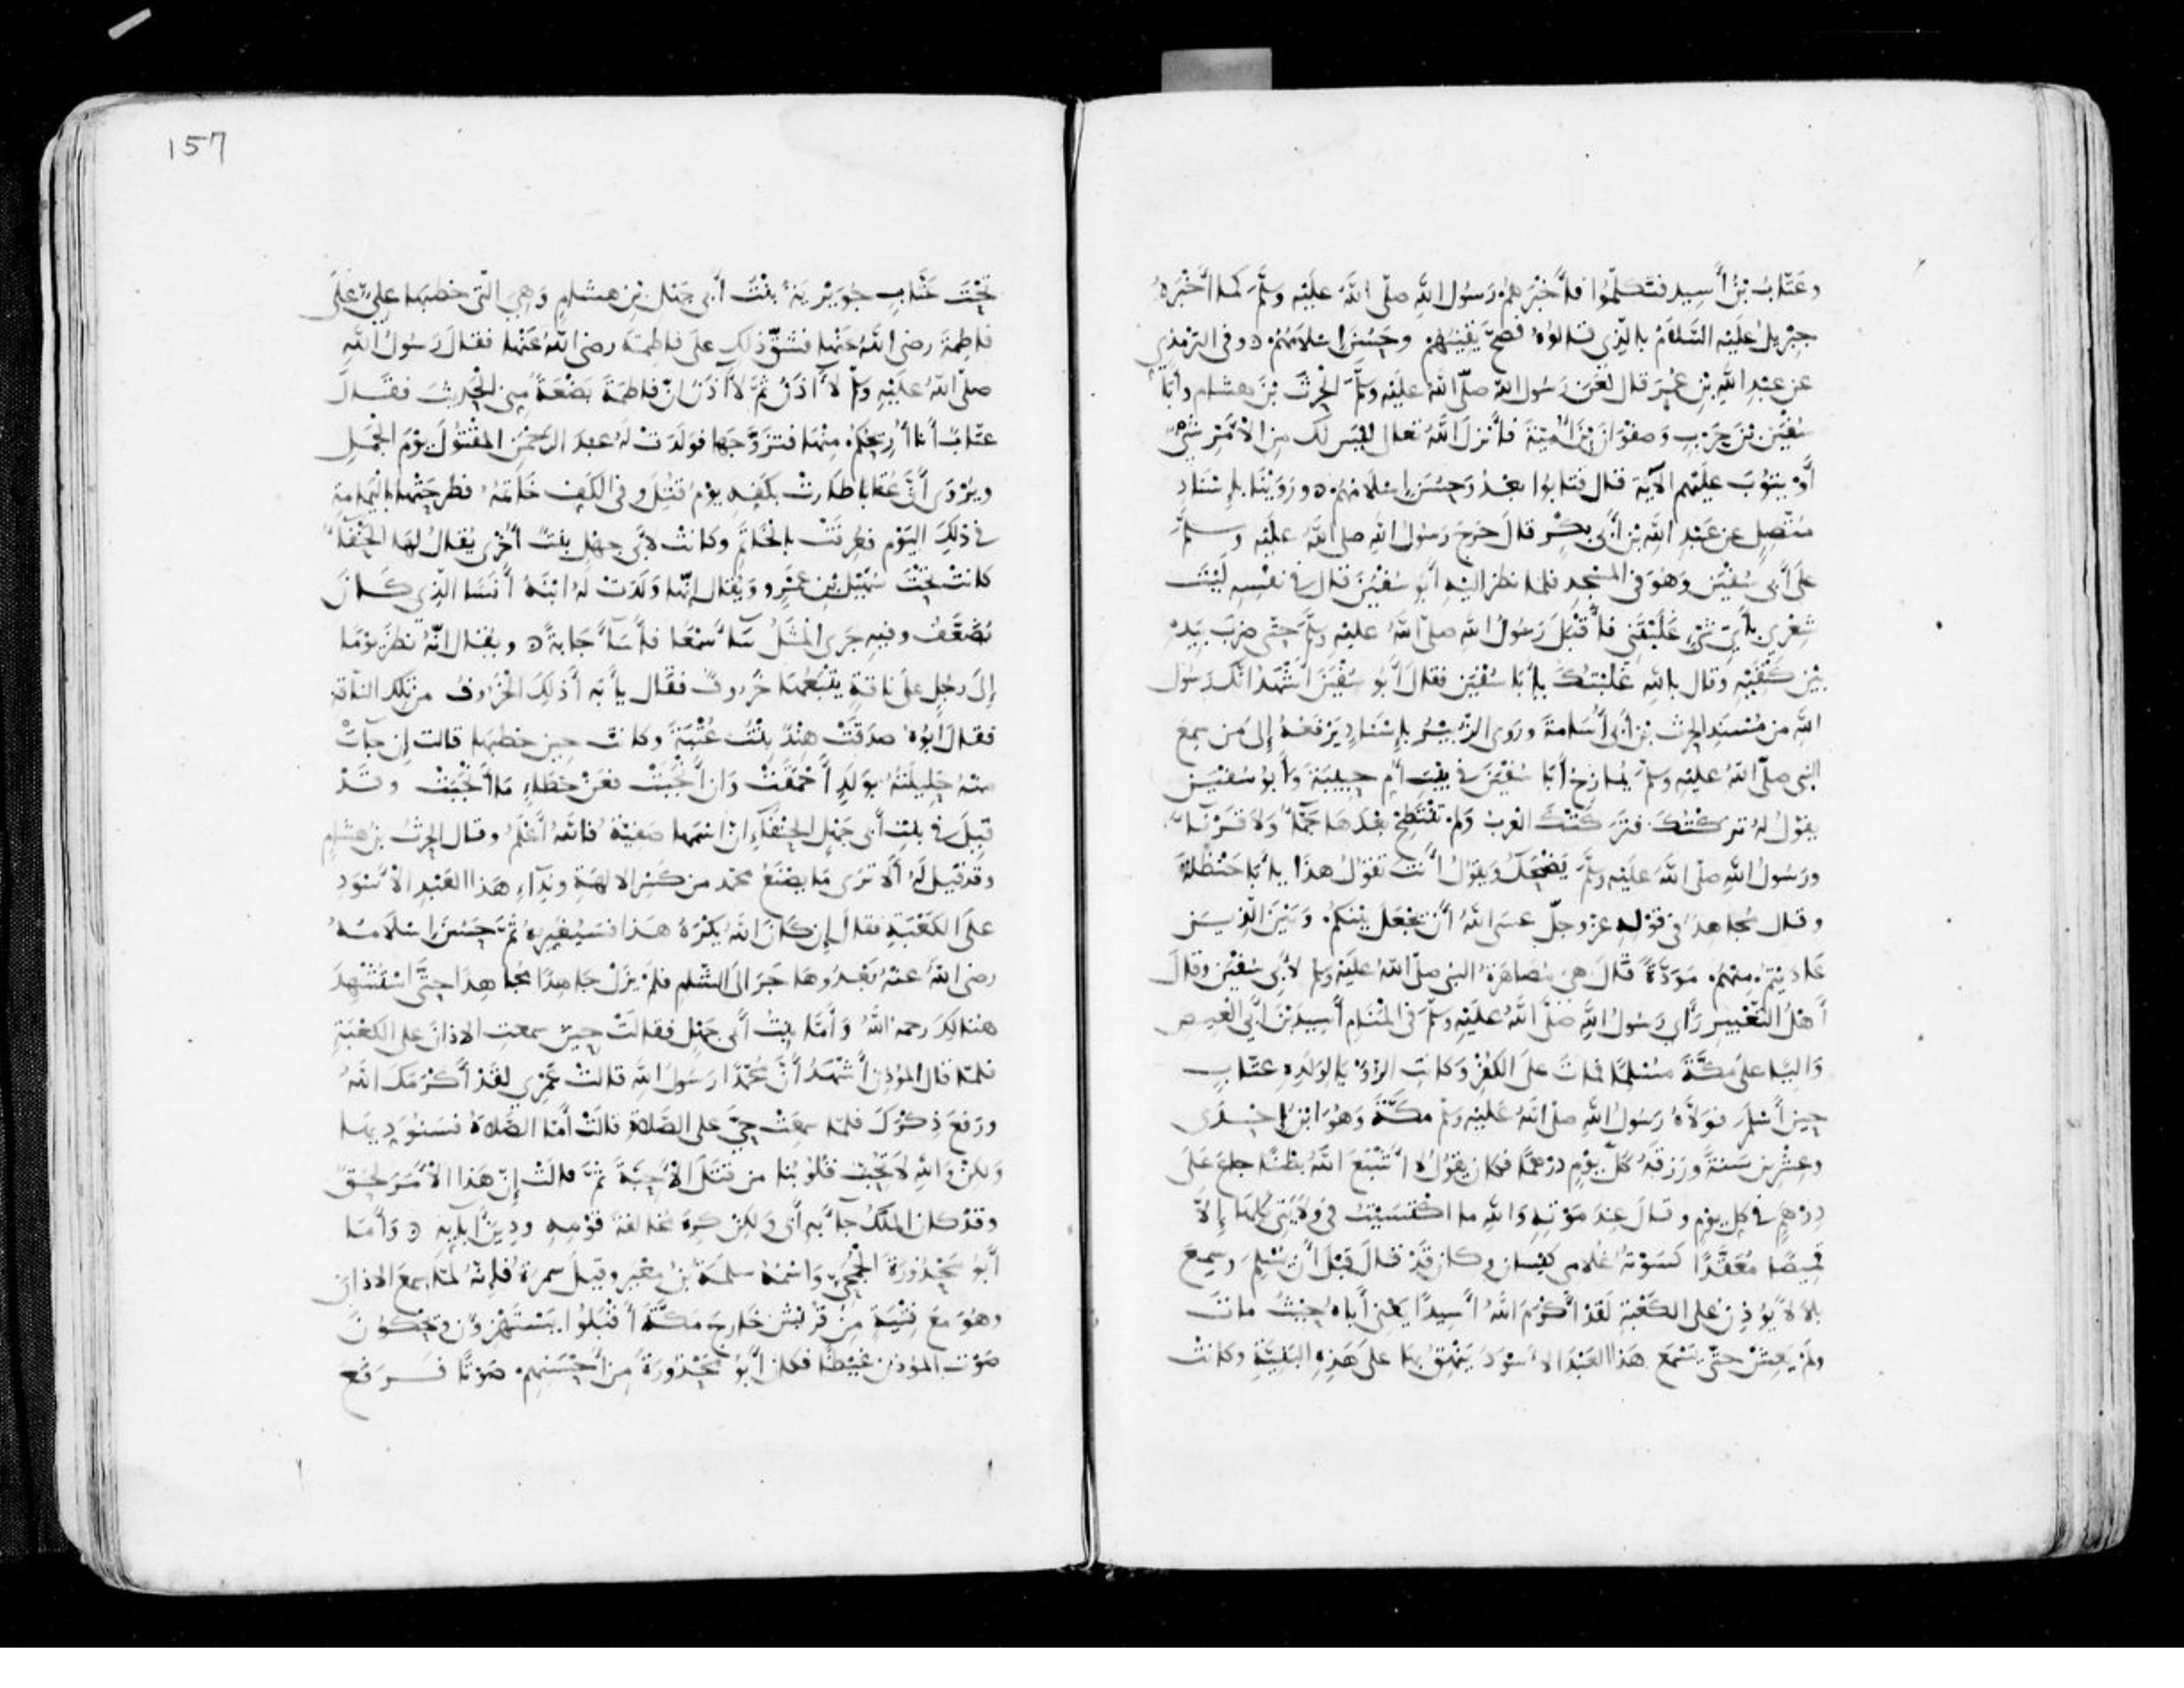 وعَتَّابُ بْنُ أَسِيد فتكلّموا فأَخْبَرهُم رَسُول اللهِ صلّى اللهُ عليْه وسلَّم كما أَخْبَرهُ
جِبْريلُ عليْه السَّلامُ بالّذِي قالوُهُ فصحَّ يقينُهم وحَسُنَ اسْلامُهُم ٥ وفى الترمذي
عن عبْدِ اللهِ بْنِ عُمَرَ قال لَعَنَ رسُول اللهِ صلّى اللهُ عليْه وسلَّم الحرثَ بْنَ هشام وأبَا
سُفْيَن بْنَ حَرْبٍ وَصفْوَانَ بْنَ أُمَيّةَ فأَنزلَ اللهُ تعالى ليْسَ لك مِنَ الأَمْرِ شَيْءٌ
أَوْ يتوُبَ عليْهم الآية قال فتابُوا بعْدُ وَحسُنَ إسْلامُهُم ٥ ورَوَيْنَا بإِسْنَادٍ
مُتّصِلٍ عن عَبْدِ اللهِ بْن أَبى بكْرٍ قالَ خرجَ رَسُولُ اللهِ صلى اللهُ عليْه وسلَّم
على أَبى سُفْيَن وَهُوَ فى المسْجدِ فلما نظرَ اليْهِ أَبو سُفْيَن قال فى نفْسِهِ ليْتَ
شِعْري بأَيِّ شَيْءٍ غلَبْتَنى فأَقْبَلَ رَسُولُ اللهِ صلّى اللهُ عليْه وسلَّم حتّى ضربَ بيَدِهِ
بيْن كتِفَيْهِ وقال باللهِ غَلَبْتُكَ يا أَبَا سُفْيَن فقالَ أَبُو سُفْيَن أَشْهَدُ انّك رسُول
اللهِ من مُسْنَدِ الحرث بن أَبى أُسَامةَ ورَوى الزّبيْرُ بإِسْنادٍ يَرْفعُهُ إِلى مَن سمِعَ
النبى صلّى اللهُ عليْه وسلّم يُمازِحُ أَبَا سُفْيَن فى بيْتِ أُمّ حبيبَةَ وأَبوُ سُفْيَن
يقوْلُ لهُ تركْتُكَ فترَكتْكَ العربُ ولم تنْتَطِحْ بعْدَها جمّاءُ وَلا قَرْناءُ
ورَسُولُ اللهِ صلّى اللهُ عليْه وسلَّم يَضْحَكُ وَيقوُلُ أَنتَ تقوُلُ هذا يا أَبَا حَنْظَلةَ
وقال مُجاهدٌ فى قوْلِهِ عزّ وجلّ عسَى اللهُ أَن يَجْعَل بيْنكُم وَبيْنَ الّذِينَ
عَاديْتُم مِنْهُم مَودّةً قالَ هى مُصاهَرةُ النبى صلّى اللهُ عليْه وسلم لأَبى سُفْيَن وقالَ
أَهْلُ التّعْبيرِ رَأَى رَسُولُ اللهِ صَلَّى اللهُ عليْه وسلّم فى المنَامِ أَسيدَ بْنَ أَبى العيصِ
وَاليًا علىَ مكّةَ مُسْلِمًا فماتَ على الكفْرِ وكانَتِ الرّؤْيا لِولَدِهِ عتّاب
حينَ أَسْلمَ فوَلاّهُ رَسُولُ اللهِ صلّى اللهُ عليْه وسلم مكّةَ وَهُوَ ابْنُ إحْدَى
وعِشْرين سَنةً ورَزقَهُ كلَّ يوْم دِرْهمًا فكان يقوُلُ لا أَشْبَعَ اللهُ بطْنًا جاعَ علَى
دِرْهمٍ فى كل يوْم وقالَ عنْدَ موْتِهِ وَاللهِ ما اكْتسَبْتُ فى وِلايَتى كلّها إلّا
قَمِيصًا مُعَقّدًا كسَوْتُهُ غُلامى كيْسان وكان قدْ قالَ قبْلَ أَن يُسْلِمَ وسمعَ
بلالاً يؤذّن على الكعْبةِ لَقدْ أَكْرَمَ اللهُ أَسيدًا يعْنى أَباهُ حيْثُ ماتَ
ولم يَعِشْ حتّى يسْمعَ هذا العَبْدَ الاسْودَ ينْهِقُ بها على هَذِهِ البَنِيّةِ وكانتْ
157
تحْتَ عَتّابٍ جُوَيْريَةُ بنْتُ أَبى جَهْل بْنِ هشام وَهِىَ التى خطبَها علىٌّ علَى
فاطمةَ رضى اللهُ عنْها فشَقَّ ذلِك علَى فاطمةَ رضى اللهُ عَنْها فقالَ رَسُولُ اللهِ
صلّى اللهُ عليْه وسلم لا آذَنُ ثُمَّ لا آذَنُ انّ فاطمَةَ بَضْعَةٌ مِنى الحديثَ فقالَ
عتّابٌ أَنا أُريحُكُم مِنْها فتزَوَّجها فوَلدَتْ لهُ عبْدَ الرّحْمَن المقْتُولَ يوْمَ الجَمَلِ
ويُرْوَى أَنَّ عُقَابًا طارتْ بكَفّهِ يوْم قتِلَ وفى الكَفِّ خاتمُهُ فطرحَتْها باليَمامةِ
فى ذلكَ اليَوْم فعُرفَتْ بالخاتم وكانتْ لأَبى جهْل بنْتٌ أُخْرى يُقالُ لها الحنْفَآءُ
كانتْ تحْتَ سُهَيْلِ بْن عَمْرٍو وَيُقال إنّها وَلَدَتْ لهُ ابْنَهُ أَنَسًا الّذِي كـانَ
يُضَعَّفُ وفيهِ جَرى المثَلُ سَاءَ سَمْعًا فأَسَآءَ جَابةً ٥ ويُقال انّهُ نظرَ يوْمًا
إلى رجُل على ناقةٍ يتْبَعُها خَروفٌ فقال يا أَبَه أَذلك الخَرُوفُ من تلك النّاقة
فقالَ أَبُوهُ صدَقَتْ هنْدٌ بنْتُ عُتْبَةَ وكانت حينَ خطبَها قالت إن جاءتْ
منْهُ حَليلَتُهُ بوَلَدٍ أَحْمَقَتْ وَان أَنْجَبَتْ فعَنْ خَطَاءٍ مّا أَنْجَبَتْ وقَدْ
قيلَ فى بنْتِ أَبى جَهْل الحنْفَآءِ انّ اسْمها صَفيّةُ فاللهُ أَعْلمُ وقال الحرثُ بْنُ هشام
وقد قيلَ لهُ أَلا ترَى مَا يصْنَعُ محمد من كسْر الالهَةِ ونِدَاءِ هَذا العَبْدِ الأَسْوَدِ
علَى الكعْبَةِ فقالَ إن كانَ اللهُ يكْرَهُ هَذا فسَيُغَيّرهُ ثُمَّ حَسُنَ إسْلامُهُ
رضى اللهُ عنْهُ بَعْدُ وهاجَرَ إلى الشّام فلَم يَزَلْ جَاهدًا مُجاهِدًا حتَّى اسْتُشْهِدَ
هُنالِكَ رحمهُ اللهُ وَأَمّا بنْتُ أَبى جَهْل فقالَتْ حينَ سمِعتِ الاذانَ على الكعْبَةِ
فلمّا قال المؤذن أَشْهَدُ أَنَّ مُحَمّدًا رَسُولُ اللهِ قالتْ عَمْرِي لقَدْ أَكْرَمَك اللهُ
ورَفَعَ ذِكْرَكَ فلمّا سمِعَتْ حَىَّ على الصّلاةِ قالَتْ أَمّا الصّلاةُ فسَنُوَدّيهَا
وَلكِنْ وَاللهِ لا تُحِبُّ قُلوبُنا من قتَلَ الأَحِبّةَ ثُمَّ قالَتْ إنّ هَذا الأَمْرَ لَحَقٌّ
وقدْ كان المَلَكُ جاءَ بهِ أَبى وَلكِنْ كرهَ مُخالفَةَ قوْمِهِ ودينَ آبائِهِ ٥ وَأَمّا
أَبُو محْذُورَةَ الجُمَحِىُّ وَاسْمُهُ سلَمةُ بْنُ مِعْيَر وقيلَ سمرةُ فإنّهُ لمّا سمعَ الاذانَ
وهُوَ معَ فتْيَةٍ مِنْ قريْشٍ خارجَ مَكَّةَ أَقْبَلُوا يَسْتَهْزئون ويحْكُونَ
صَوْتَ المؤذن غيْظًا فكان أَبُو محْذُورَةَ مِن أَحْسَنِهِم صَوْتًا فـرفع